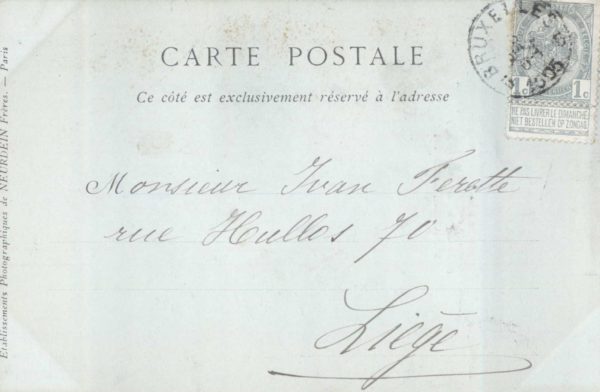 CARTE POSTALE
Ce côté est exclusivement réservé à l'adresse
BRUXELLES
1905
1c 1c
NE PAS LIVRER LE DIMANCHE
NIET BESTELLEN OP ZONDAG
Monsieur Ivan Ferette
rue Hullos 70
Liège
Etablissements Photographiques de NEURDEIN Frères. — Paris